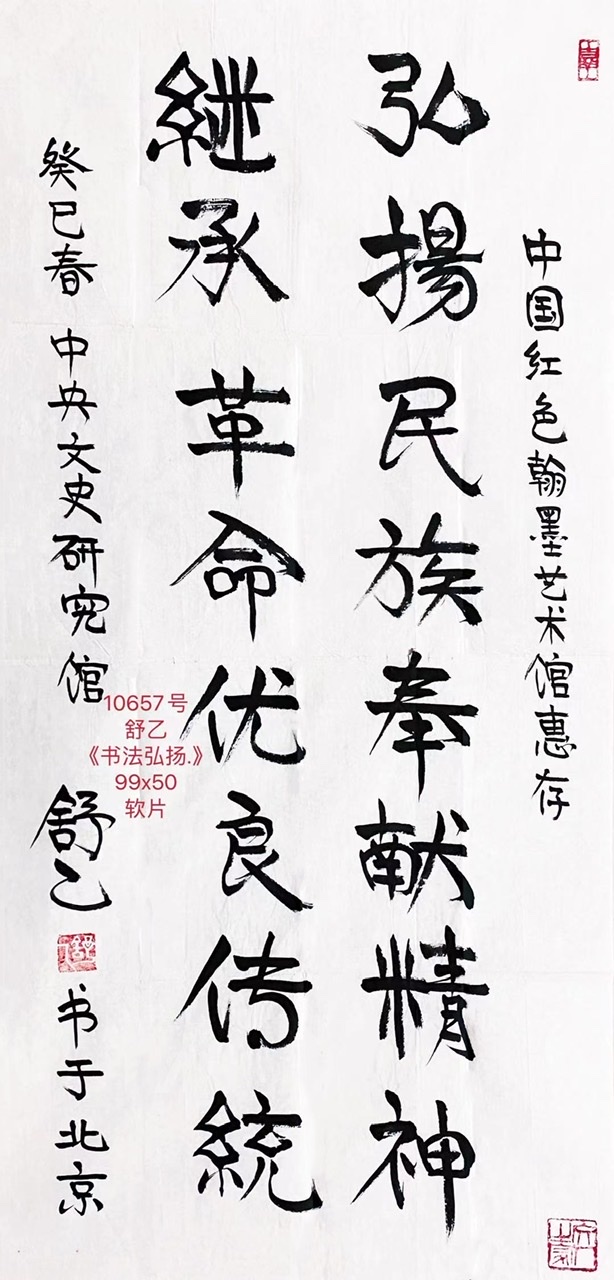 中国红色翰墨艺术馆惠存
弘揚民族奉献精神
継承革命优良传統
癸巳春 中央文史研究馆
舒乙
书于北京
10657号
舒乙
《书法弘扬.》
99x50
软片